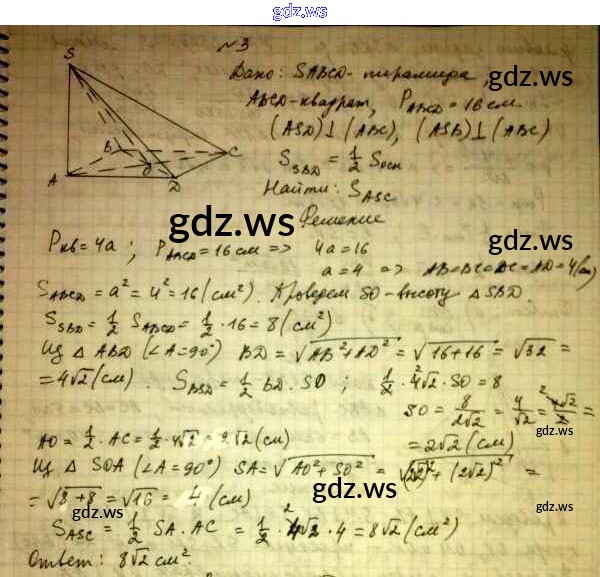 gdz.ws
№3
Дано: SABCD-пирамида,
gdz.ws
ABCD-квадрат, P_ABCD = 16 см
(ASD)⊥(ABC), (ASB)⊥(ABC)
S_SBD = 1/2 Sосн
Найти: S_ASC
S
B
C
A
O
D
gdz.ws
Решение
gdz.ws
Pкв = 4a; P_ABCD = 16 см => 4a = 16
a = 4 => AB=BC=DC=AD=4(см)
S_ABCD = a² = 4² = 16 (см²). Проведем SO-высоту △SBD.
S_SBD = 1/2 S_ABCD = 1/2 · 16 = 8 (см²)
Из △ABD (∠A=90°) BD = √AB²+AD² = √16+16 = √32 =
= 4√2 (см). S_BSD = 1/2 BD · SO; 1/2 · 4√2 · SO = 8
SO = 8/2√2 = 4/√2 = 4√2/2 =
= 2√2 (см)
AO = 1/2 · AC = 1/2 · 4√2 = 2√2 (см)
Из △SOA (∠A=90°) SA = √AO²+SO² = √(2√2)²+(2√2)² =
= √8+8 = √16 = 4 (см)
gdz.ws
gdz.ws
S_ASC = 1/2 SA · AC = 1/2 · 4√2 · 4 = 8√2 (см²)
Ответ: 8√2 см².
gdz.ws